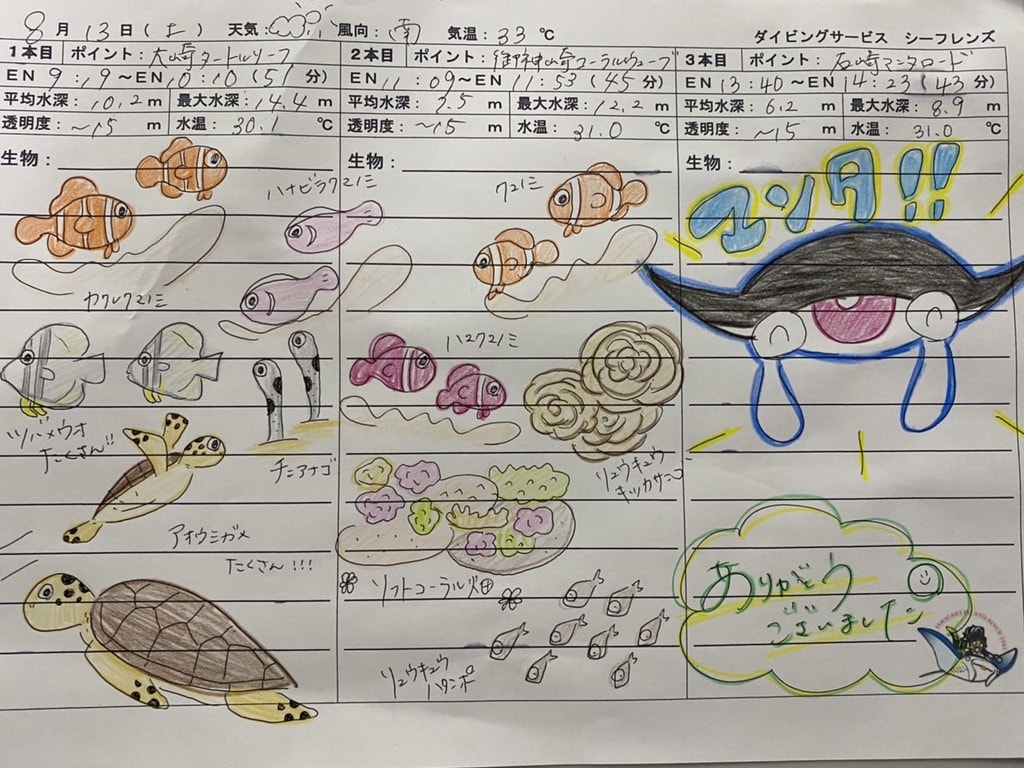 8月13日(土) 天気: 風向:南 気温:33℃
ダイビングサービス シーフレンズ
1本目 ポイント:大崎タートルリーフ
EN 9:19〜EN 10:10(51分)
平均水深:10.2m 最大水深:14.4m
透明度:〜15m 水温:30.1℃
生物:
ハナビラクマノミ
カクレクマノミ
ツバメウオ
たくさん!!
チンアナゴ
アオウミガメ
たくさん!!!
2本目 ポイント:御神崎コーラルウェーブ
EN 11:09〜EN 11:53(45分)
平均水深:3.5m 最大水深:12.2m
透明度:〜15m 水温:31.0℃
生物:
クマノミ
ハマクマノミ
リュウキュウ
キッカサンゴ
ソフトコーラル畑
リュウキュウ
ハタンポ
3本目 ポイント:石崎マンタロード
EN 13:40〜EN 14:23(43分)
平均水深:6.2m 最大水深:8.9m
透明度:〜15m 水温:31.0℃
生物:
マンタ!!
ありがとう
ございました